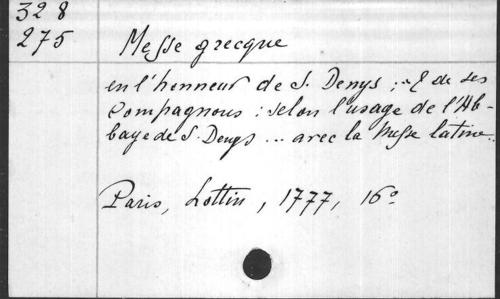 328
275
Messe grecque
en l'honneur de S. Denys ; & de ses
compagnons : selon l'usage de l'Ab-
baye de S. Denys ... avec la Messe latine..
Paris, Lottin, 1777, 16°